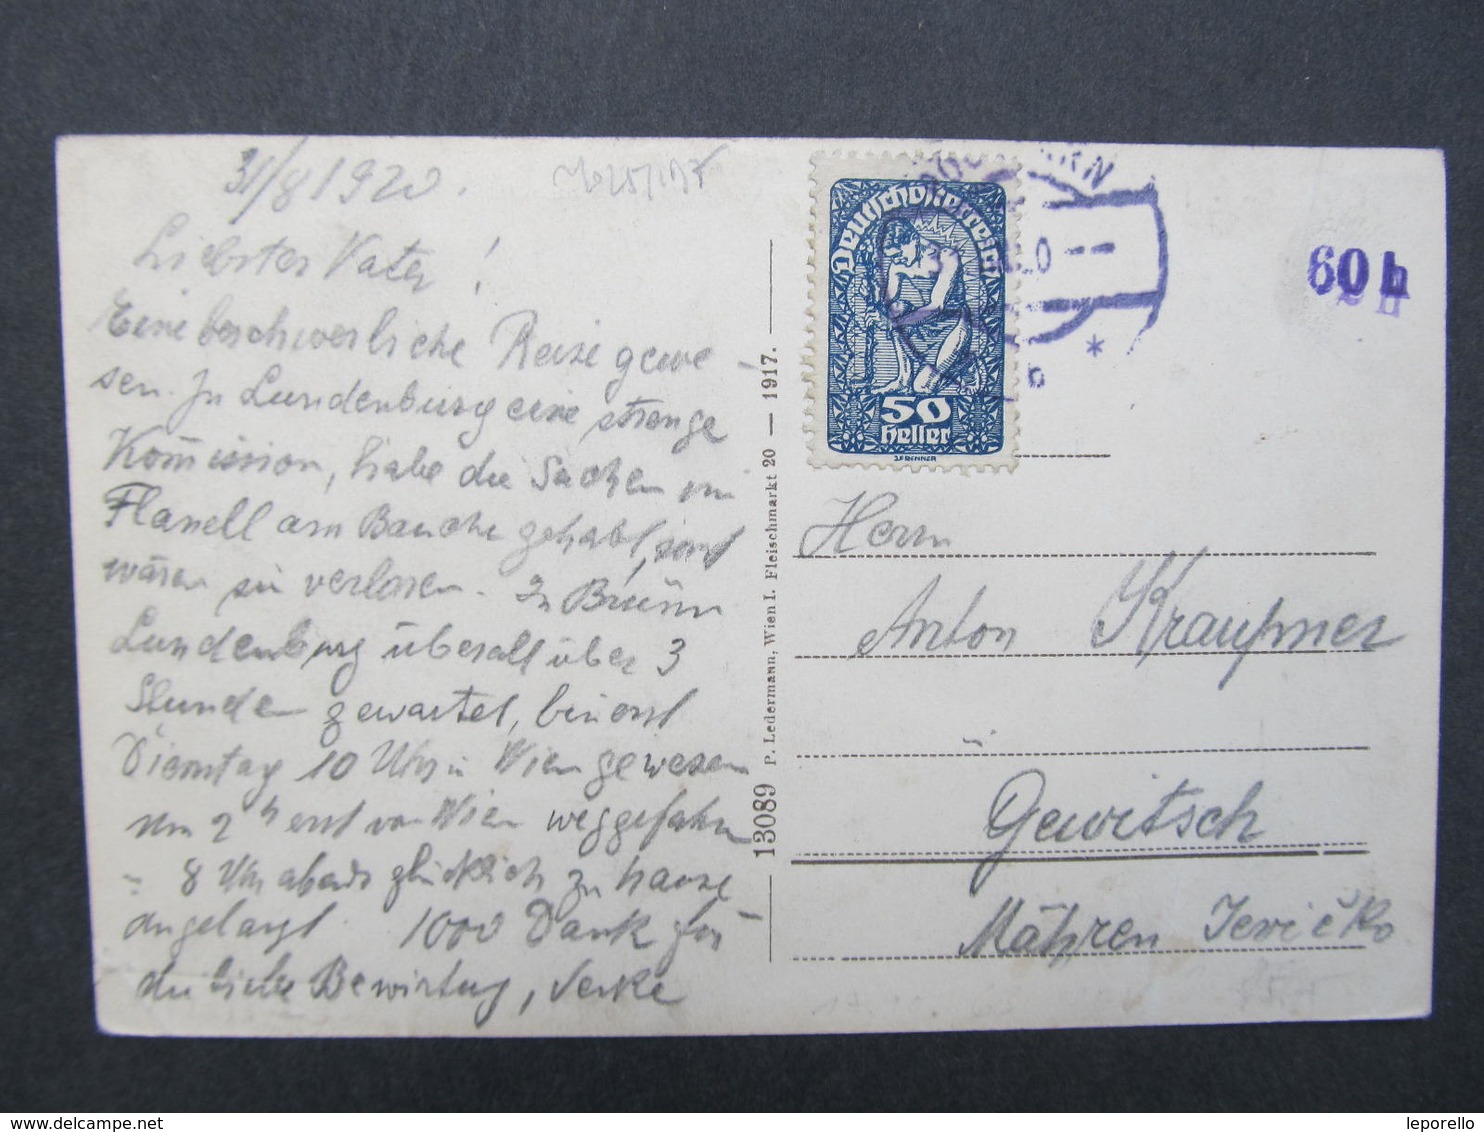 31/8 1920.
Liebster Vater!
Eine beschwerliche Reise gewe-
sen. In Lundenburg eine strenge
Kommission, habe die Sachen im
Flanell am Bauche gehabt, sonst
wären sie verloren. In Brünn
Lundenburg überall über 3
Stunden gewartet, bin erst
Dienstag 10 Uhr in Wien gewesen
um 2h erst von Wien weggefahren
8 Uhr abends glücklich zu hause
angelangt. 1000 Dank für
die liebe Bewirtung,
13089 P. Ledermann, Wien I. Fleischmarkt 20 — 1917.
Deutschösterreich
50
Heller
J.F.RENNER
60 h
Herrn
Anton Kraupner
Gewitsch
Mähren Jevičko
delcampe.net
leporello